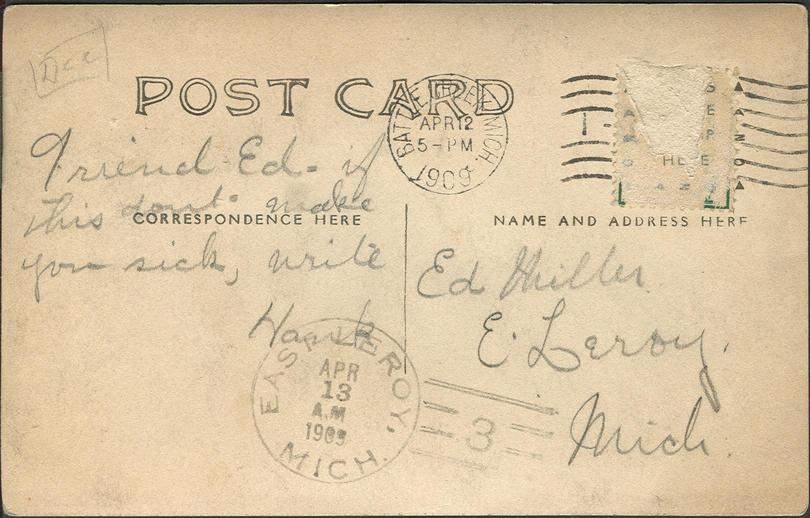 Dcc
POST CARD
BATTLE CREEK, MICH.
APR 12
5-PM
1909
HERE
Friend Ed - if
this dont make
CORRESPONDENCE HERE
NAME AND ADDRESS HERE
you sick, write
Hank
Ed Miller
E. Leroy,
Mich.
EAST LEROY,
APR
13
A.M
1909
MICH.
3